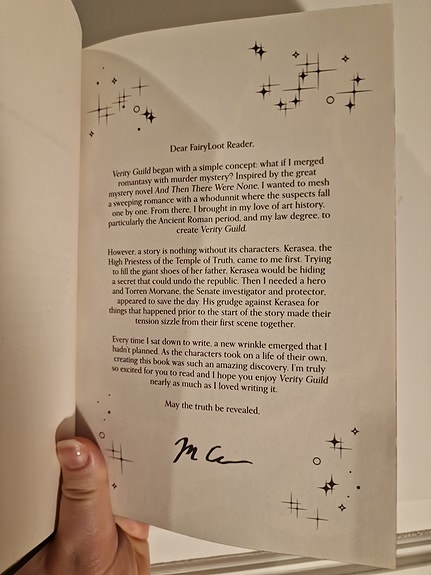 Dear FairyLoot Reader,
Verity Guild began with a simple concept: what if I merged
romantasy with murder mystery? Inspired by the great
mystery novel And Then There Were None, I wanted to mesh
a sweeping romance with a whodunnit where the suspects fall
one by one. From there, I brought in my love of art history,
particularly the Ancient Roman period, and my law degree, to
create Verity Guild.
However, a story is nothing without its characters. Kerasea, the
High Priestess of the Temple of Truth, came to me first. Trying
to fill the giant shoes of her father, Kerasea would be hiding
a secret that could undo the republic. Then I needed a hero
and Torren Morvane, the Senate investigator and protector,
appeared to save the day. His grudge against Kerasea for
things that happened prior to the start of the story made their
tension sizzle from their first scene together.
Every time I sat down to write, a new wrinkle emerged that I
hadn't planned. As the characters took on a life of their own,
creating this book was such an amazing discovery. I'm truly
so excited for you to read and I hope you enjoy Verity Guild
nearly as much as I loved writing it.
May the truth be revealed,